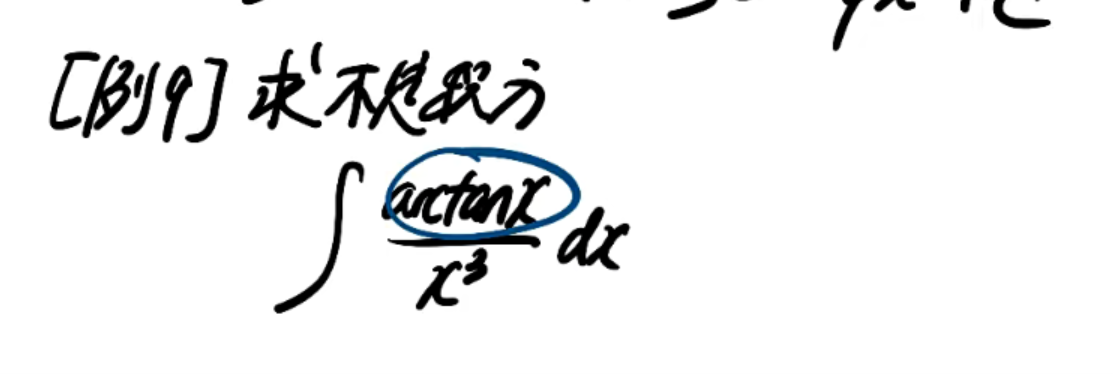 [例9] 求不定积分
∫ arctanx / x³ dx